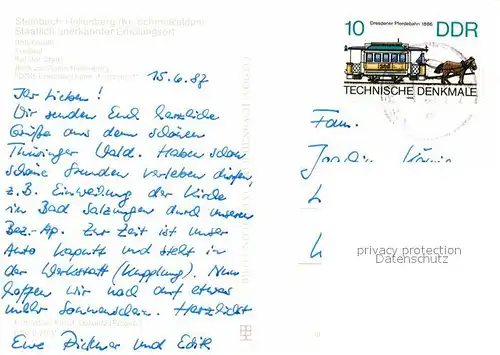 Steinbach-Hallenberg (Kr. Schmalkalden)
Staatlich anerkannter Erholungsort
15.6.87
Ihr Lieben!
Wir senden Euch herzliche
Grüße aus dem schönen
Thüringer Wald. Haben schon
schöne Stunden verleben dürfen,
z.B. Einweihung der Kirche
in Bad Salzungen durch unseren
Bez.-Ap. Zur Zeit ist unser
Auto kaputt und steht in
der Werkstatt (Kupplung). Nun
hoffen wir noch auf etwas
mehr Sonnenschein. Herzlichst
Eure Dietmar und Edith
10 Dresdener Pferdebahn 1886 DDR
TECHNISCHE DENKMALE
Fam.
privacy protection
Datenschutz